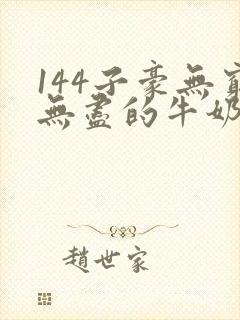 144子豪無窮
無盡的牛奶
趙世家